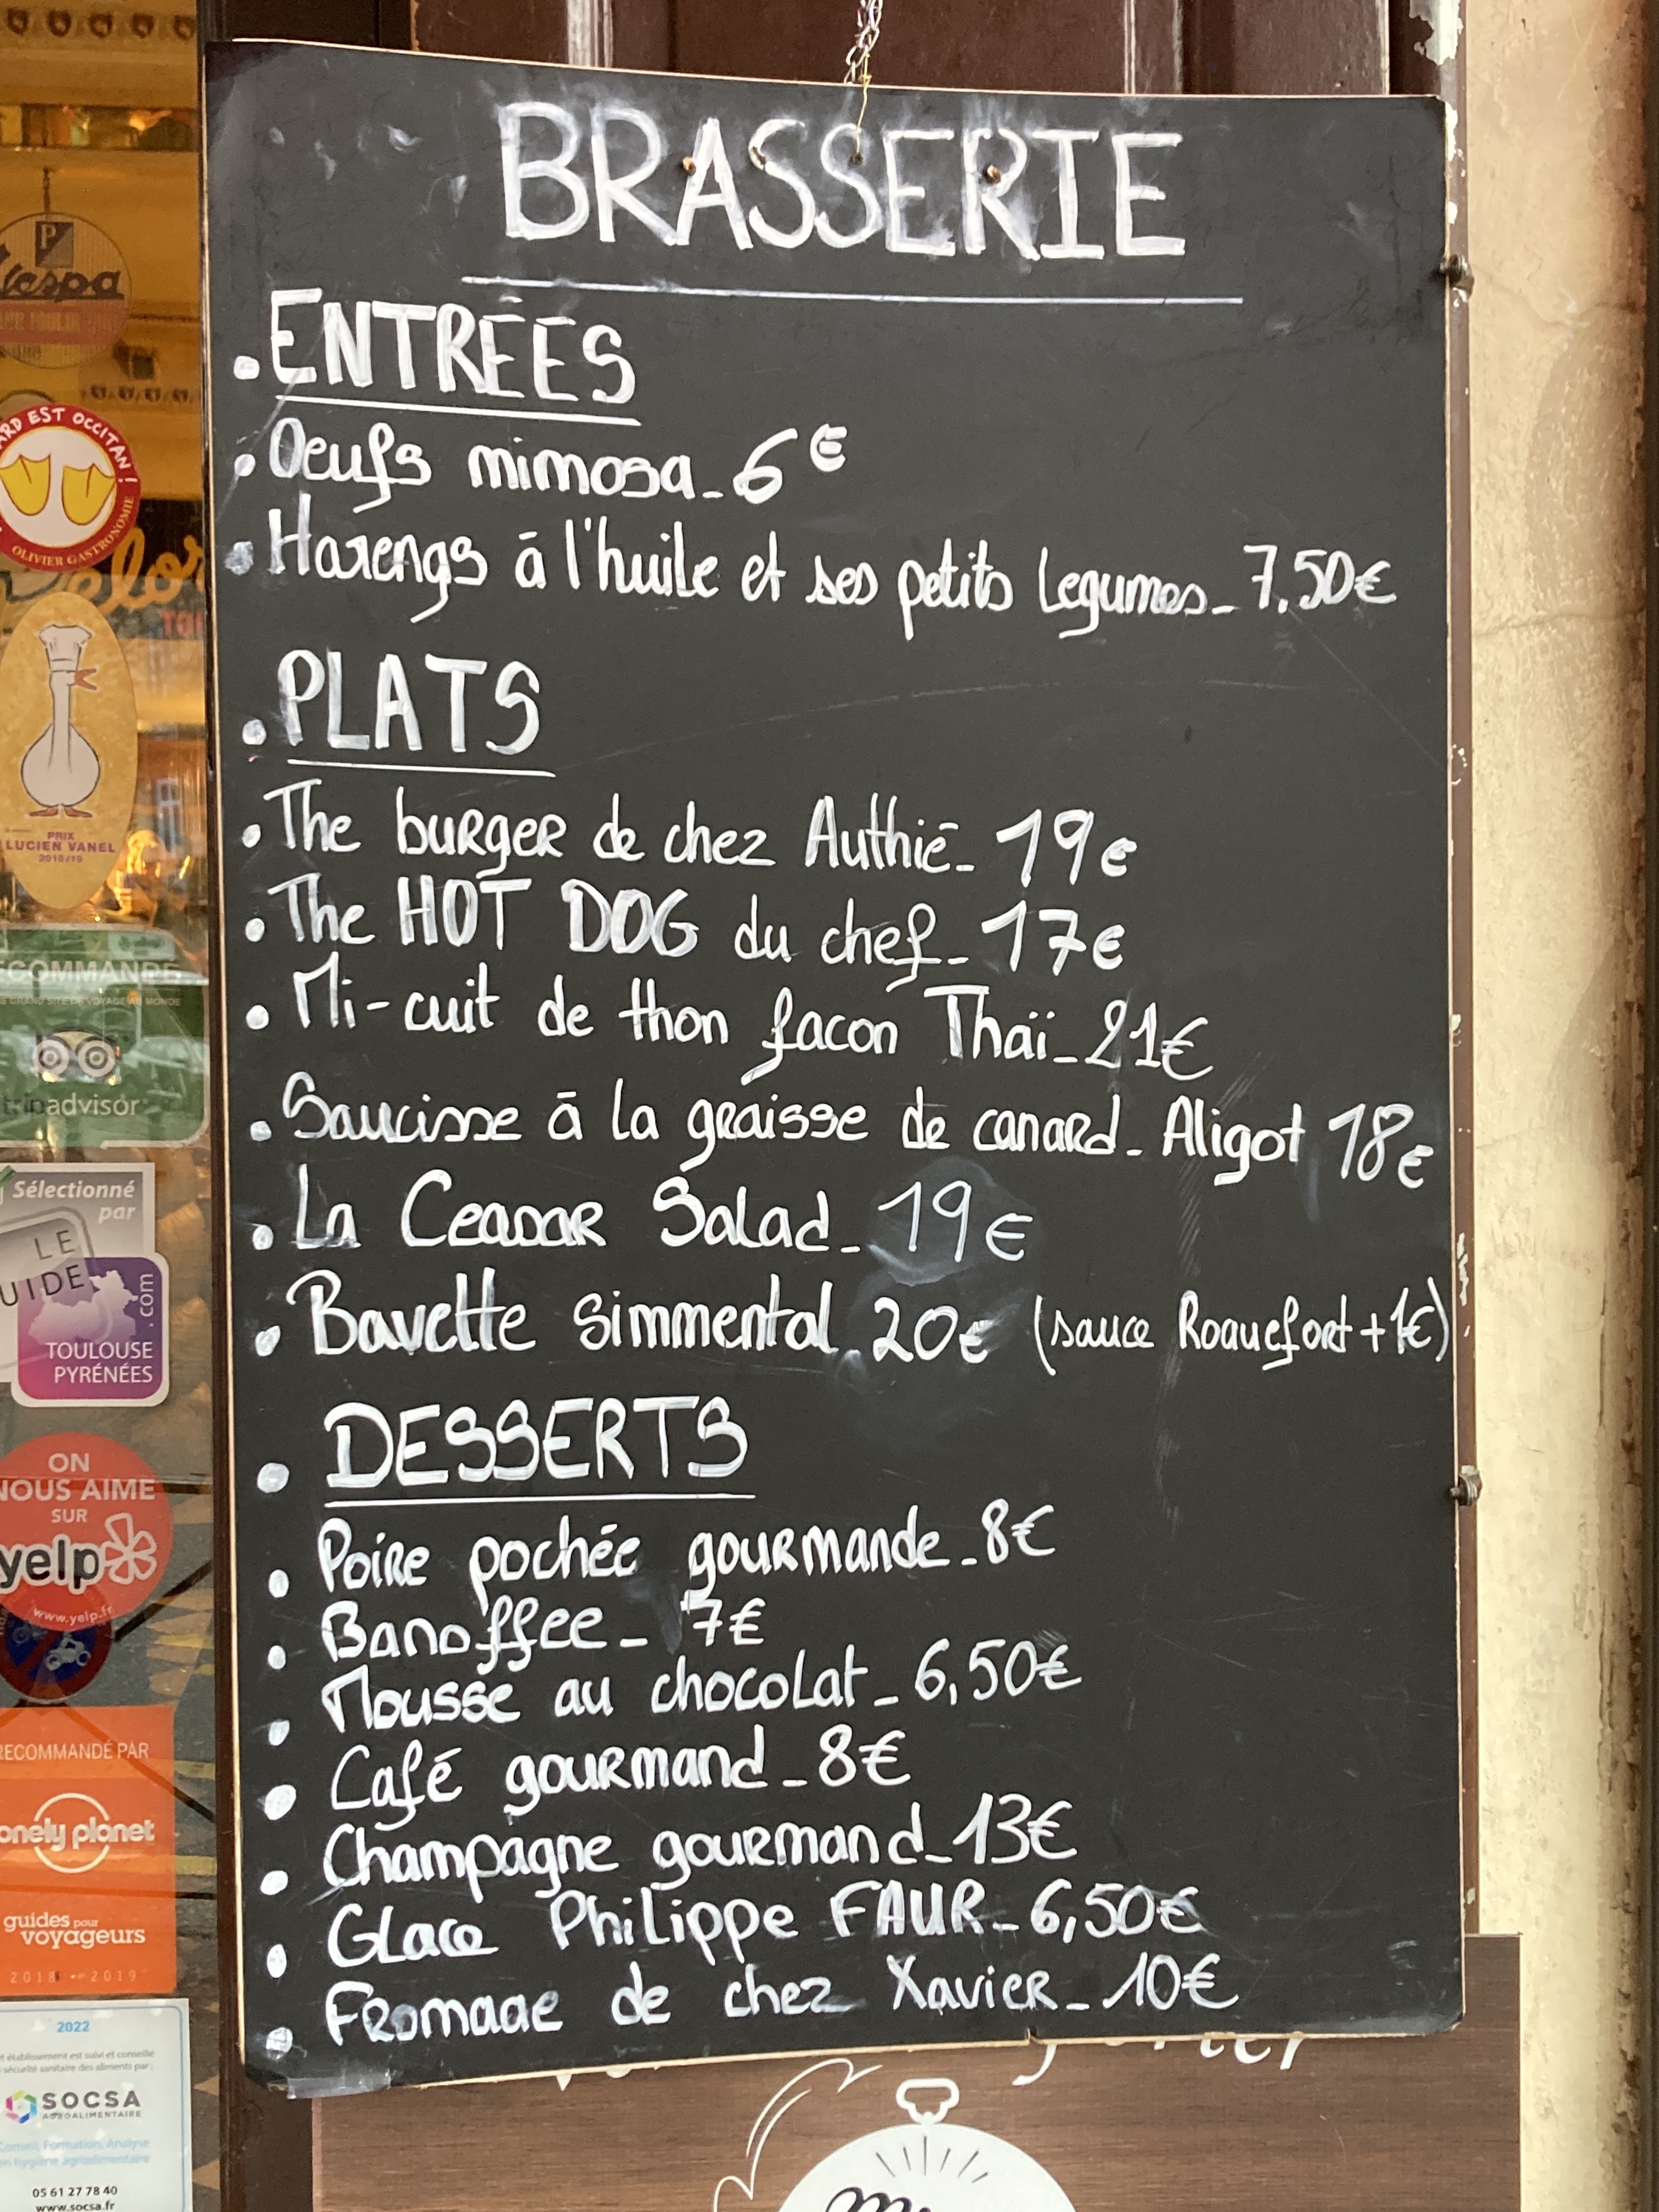 BRASSERIE
. ENTRÉES
. Oeufs mimosa _ 6€
. Harengs à l'huile et ses petits legumes _ 7,50€
. PLATS
. The burger de chez Authié _ 19€
. The HOT DOG du chef _ 17€
. Mi-cuit de thon facon Thaï _ 21€
. Saucisse à la graisse de canard _ Aligot 18€
. La Ceasar Salad _ 19€
. Bavette simmental _ 20€ (sauce Roquefort +1€)
. DESSERTS
. Poire pochée gourmande _ 8€
. Banoffee _ 7€
. Mousse au chocolat _ 6,50€
. Café gourmand _ 8€
. Champagne gourmand _ 13€
. Glace Philippe FAUR _ 6,50€
. Fromage de chez Xavier _ 10€
P
Vespa
ARD EST OCCITAN !
OLIVIER GASTRONOMIE
PRIX
LUCIEN VANEL
2018/19
COMMANDÉ
GRAND SITE DE VOYAGE AU MONDE
tripadvisor
Sélectionné
par
LE
UIDE
.com
TOULOUSE
PYRÉNÉES
ON
NOUS AIME
SUR
yelp
www.yelp.fr
RECOMMANDÉ PAR
onely planet
guides pour
voyageurs
2018 - 2019
2022
établissement est suivi et conseillé
sécurité sanitaire des aliments par :
SOCSA
AGROALIMENTAIRE
Conseil, Formation, Analyse
en hygiène agroalimentaire
05 61 27 78 40
www.socsa.fr